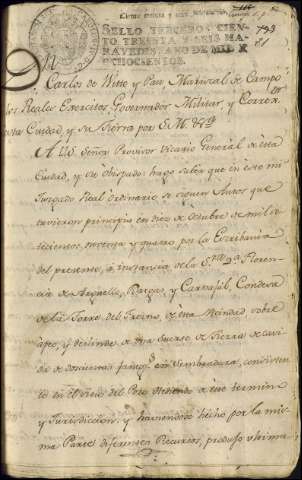 Ciento treinta y seis maravedis.
SELLO TERCERO, CIEN-
TO TREINTA Y SEIS MA-
RAVEDIS, AÑO DE MIL Y
OCHOCIENTOS.
Dn Carlos de Witte y Pau Mariscal de Campo
los Reales Exercitos Governador Militar, y Correxor
esta Ciudad, y su Tierra por S. M. &ca
A V. S. Señor Provisor Vicario General de esta
Ciudad, y su Obispado: hago saber que en este mi
Juzgado Real Ordinario se siguen Autos que
tuvieron principio en diez de Octubre de mil se-
tecientos, noventa y quatro por la Escribania
del presente, a instancia de la Sra Da Floren-
cia de Vargas, y Carvajal Condesa
de la Torre del Fresno, de esta Vecindad sobre
apeo, y deslinde de una Suerte de Tierra de cavi-
da de doscientas fanegs en Sembradura, consistente
en el sitio del Pozo de este termino
y Jurisdiccion; y haviendose hecho por la mis-
ma Parte diferentes Recursos, produjo ultima